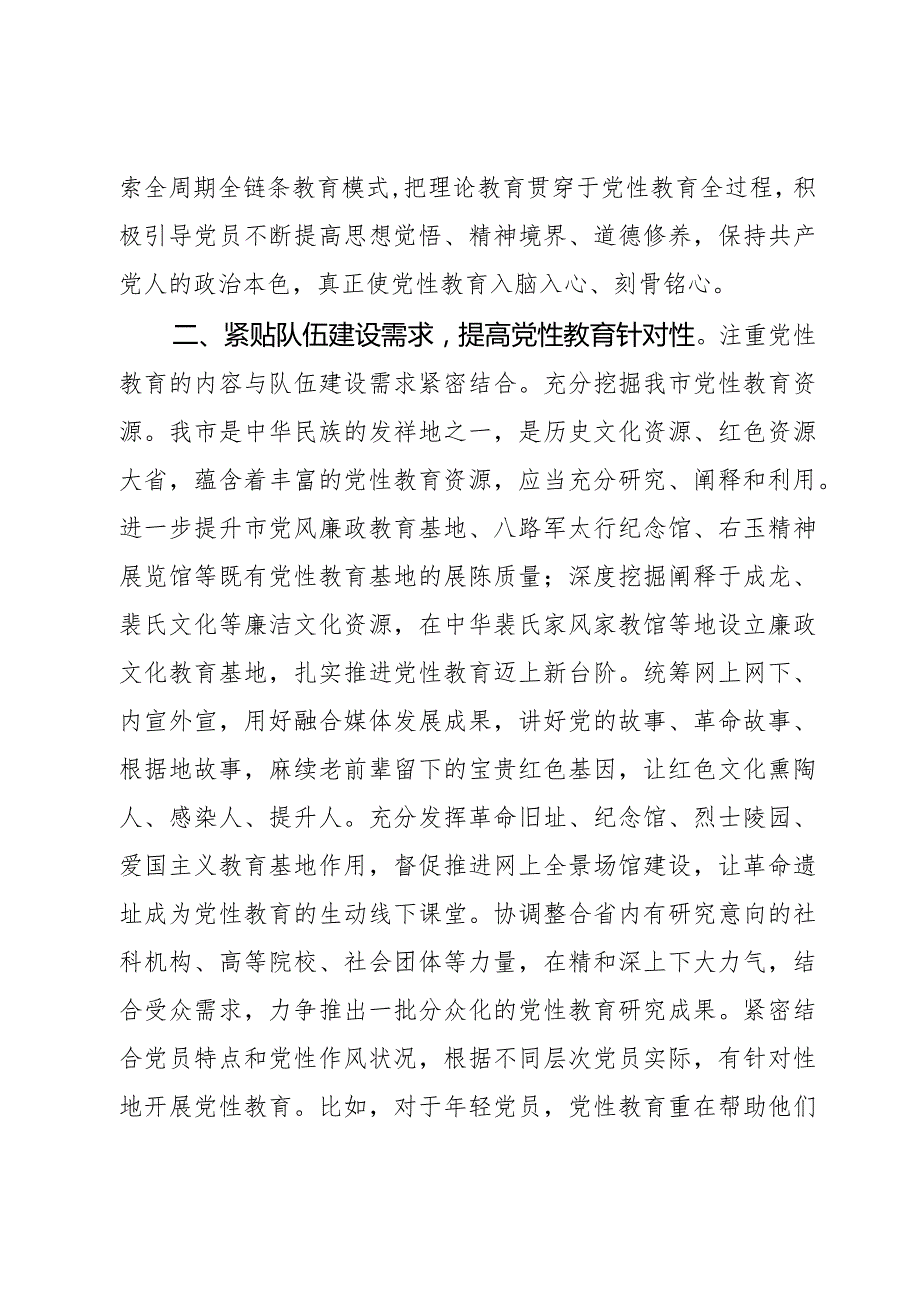 索全周期全链条教育模式,把理论教育贯穿于党性教育全过程，积
极引导党员不断提高思想觉悟、精神境界、道德修养，保持共产
党人的政治本色，真正使党性教育入脑入心、刻骨铭心。
二、紧贴队伍建设需求，提高党性教育针对性。注重党性
教育的内容与队伍建设需求紧密结合。充分挖掘我市党性教育资
源。我市是中华民族的发祥地之一，是历史文化资源、红色资源
大省，蕴含着丰富的党性教育资源，应当充分研究、阐释和利用。
进一步提升市党风廉政教育基地、八路军太行纪念馆、右玉精神
展览馆等既有党性教育基地的展陈质量；深度挖掘阐释于成龙、
裴氏文化等廉洁文化资源，在中华裴氏家风家教馆等地设立廉政
文化教育基地，扎实推进党性教育迈上新台阶。统筹网上网下、
内宣外宣，用好融合媒体发展成果，讲好党的故事、革命故事、
根据地故事，麻续老前辈留下的宝贵红色基因，让红色文化熏陶
人、感染人、提升人。充分发挥革命旧址、纪念馆、烈士陵园、
爱国主义教育基地作用，督促推进网上全景场馆建设，让革命遗
址成为党性教育的生动线下课堂。协调整合省内有研究意向的社
科机构、高等院校、社会团体等力量，在精和深上下大力气，结
合受众需求，力争推出一批分众化的党性教育研究成果。紧密结
合党员特点和党性作风状况，根据不同层次党员实际，有针对性
地开展党性教育。比如，对于年轻党员，党性教育重在帮助他们